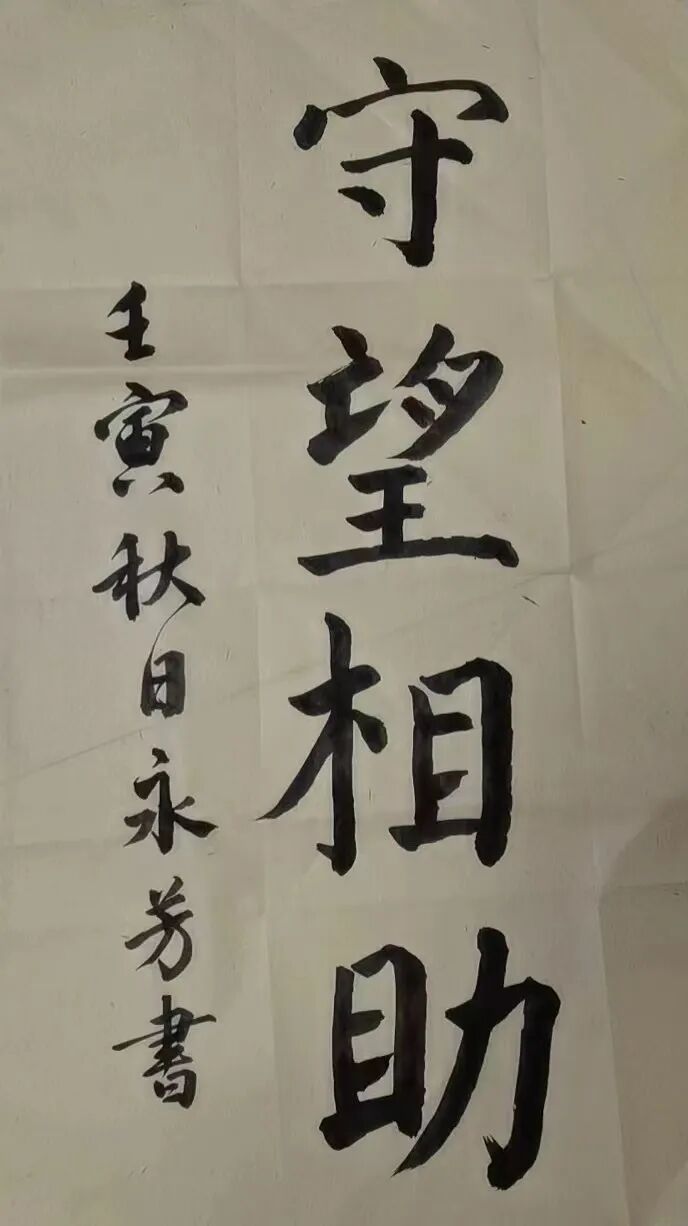 守望相助
壬寅秋日永芳書